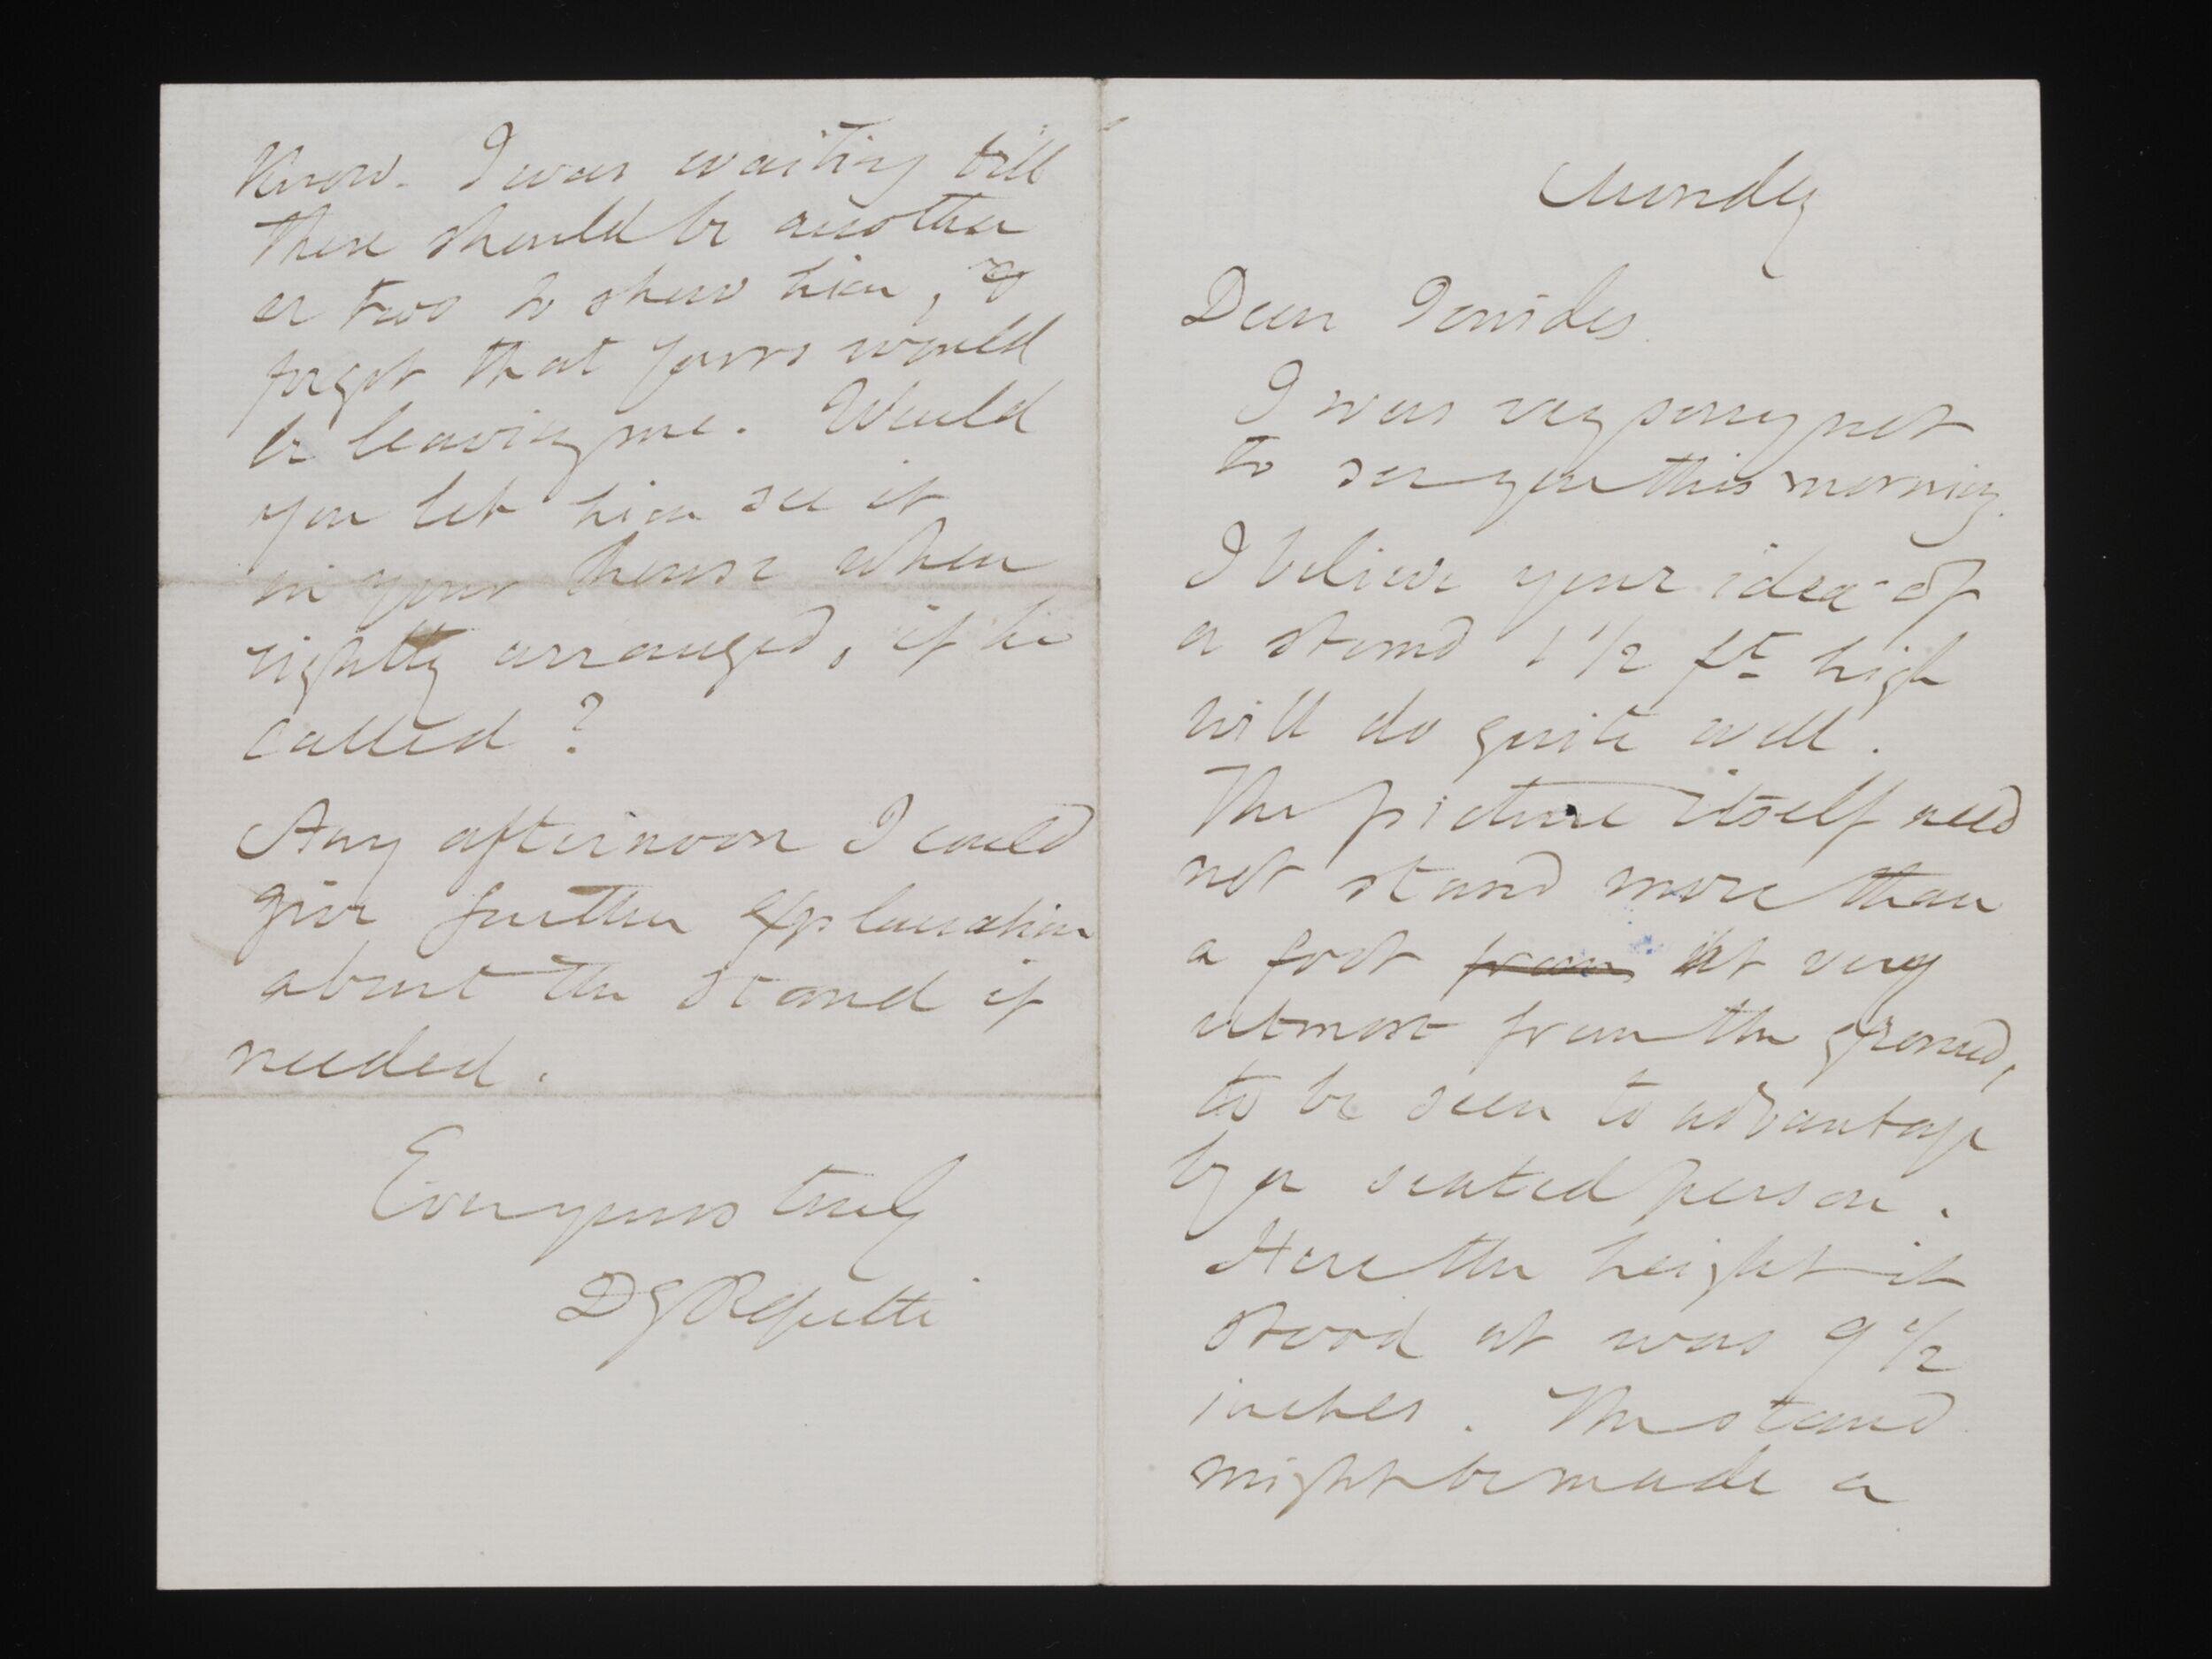 Monday
Dear Ionides
I was very sorry not
to see you this morning.
I believe your idea of
a stand 1 1/2 ft high
will do quite well.
The picture itself need
not stand more than
a foot from at very
utmost from the ground,
to be seen to advantage
by a seated person.
Here the height it
stood at was 9 1/2
inches. The stand
might be made a
know. I was waiting till
there should be another
or two to show him, &
forgot that yours would
be leaving me. Would
you let him see it
in your house when
rightly arranged, if he
called?
Any afternoon I could
give further explanation
about the stand if
needed.
Ever yours truly
D G Rossetti